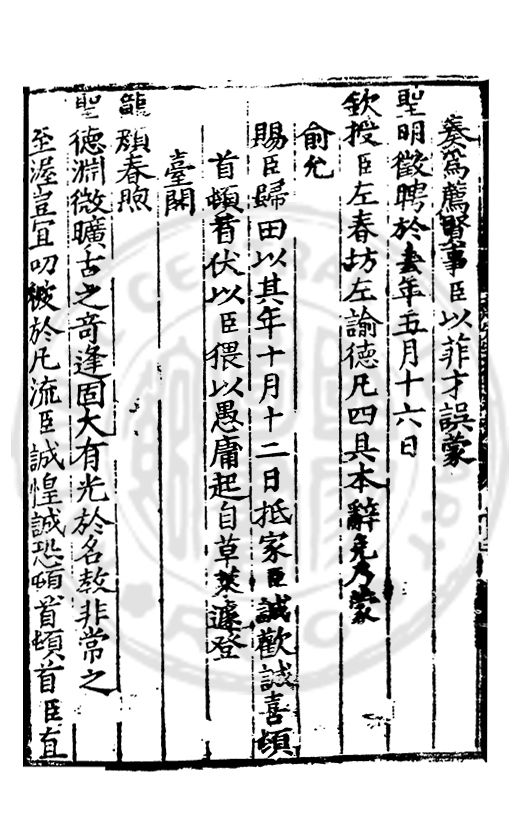 奏為薦賢事臣以菲才誤蒙
聖明徵聘於去年五月十六日
欽授臣左春坊左諭德凡四具本辭免乃蒙
俞允
賜臣歸田以其年十月十二日抵家臣誠歡誠喜頓
首頓首伏以臣猥以愚庸起自草萊遽登
臺閣
龍顏春煦
聖德淵微曠古之奇逢固大有光於名教非常之
至渥豈宜叨被於凡流臣誠惶誠恐頓首頓首臣直